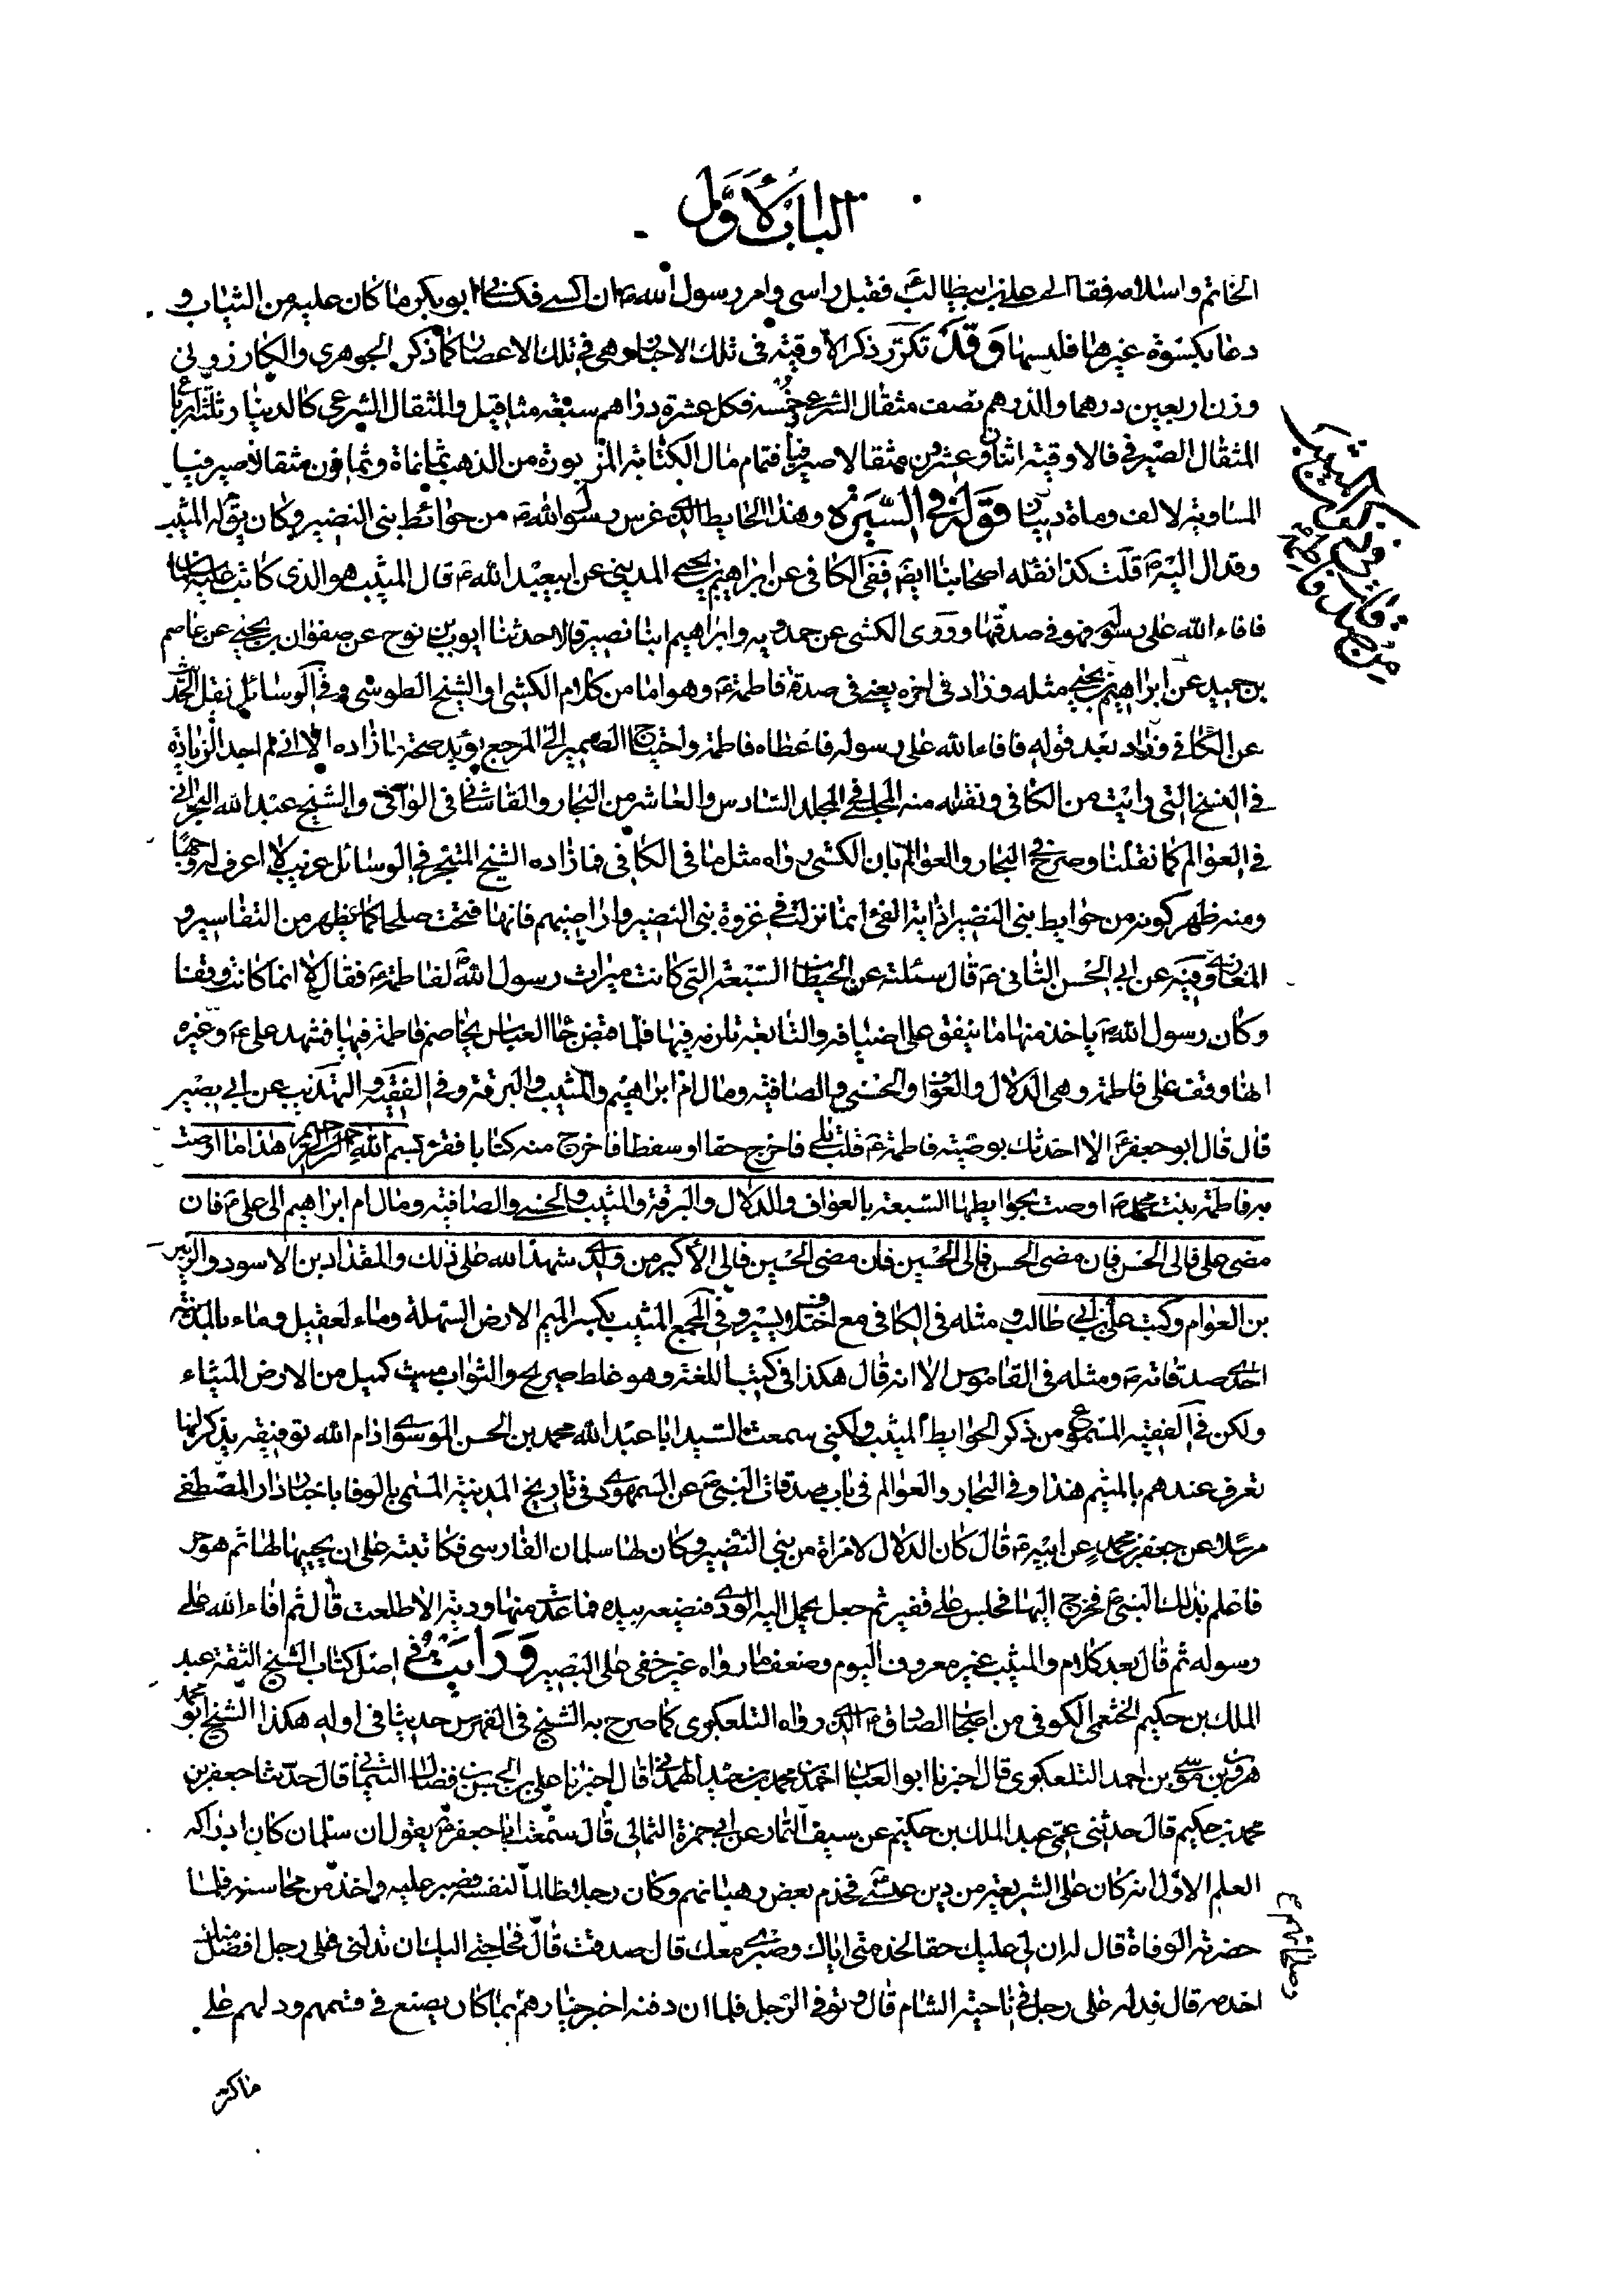 الباب الاول
الخاتم واسلامه فقال لي علي بن ابيطالب ع فقبل راسي وامر رسول الله ص ان اكسى فكساني ابو بكر ما كان عليه من الثياب و
دعا بكسوة غيرها فلبسها وقد تكرر ذكر الاوقية في تلك الاخبار وهي في تلك الاعصار كما ذكر الجوهري والكازروني
وزن اربعين درهما والدرهم نصف مثقال الشرعي وخمسه فكل عشرة دراهم سبعة مثاقيل والمثقال الشرعي كالدينار ثلثة ارباع
المثقال الصيرفي فالاوقية اثنان وعشرون مثقالا صيرفيا فتمام مال الكتابة المزبورة من الذهب ثمانمأة وثمانون مثقالا صيرفيا
المساوية لالف ومأة دينار قوله في السيرة وهذا الحايط الذي غرس رسول الله ص من حوائط بني النضير وكان يق له المثيب
وقد ال اليه ع قلت كذا نقله اصحابنا ايض ففي الكافي عن ابراهيم بن يحيى المديني عن ابيعبد الله ع قال الميثب هو الذي كاتب عليه سلمان
فافاء الله على رسوله فهو في صدقتها وروى الكشي عن حمدويه وابراهيم ابنا نصير قالا حدثنا ايوب بن نوح عن صفوان بن يحيى عن عاصم
بن حميد عن ابراهيم بن يحيى مثله وزاد في اخره يعني في صدقة فاطمة ع وهو اما من كلام الكشي او الشيخ الطوسي وفي الوسائل نقل الحديث
عن الكافي وزاد بعد قوله فافاء الله على رسوله فاعطاه فاطمة واحتياج الضمير الى المرجع يؤيد صحة ما زاده الا اني لم اجد الزيادة
في النسخ التي رايت من الكافي ونقله منه المجلسي في المجلد السادس والعاشر من البحار والقاشاني في الوافي والشيخ عبد الله البحراني
في العوالم كما نقلنا وصرح في البحار والعوالم بان الكشي رواه مثل ما في الكافي فما زاده الشيخ المتبحر في الوسائل غريب لا اعرف له وجها
ومنه ظهر كونه من حوايط بني النضير اذ اية الفئ انما نزلت في غزوة بني النضير واراضيهم فانها فتحت صلحا كما يظهر من التفاسير و
المغازي وفيه عن ابي الحسن الثاني ع قال سئلته عن الحيطان السبعة التي كانت ميراث رسول الله ص لفاطمة ع فقال لا انما كانت وقفا
وكان رسول الله ص ياخذ منها ما ينفق على اضيافه والتابعة تلزمه فيها فلما قبض جاء العباس يخاصم فاطمة فيها فشهد علي ع وغيره
انها وقف على فاطمة وهي الدلال والعواف والحسنى والصافية ومال ام ابراهيم والميثب والبرقة وفي الفقيه والتهذيب عن ابي بصير
قال قال ابو جعفر ع الا احدثك بوصية فاطمة ع قلت بلى فاخرج حقا او سفطا فاخرج منه كتابا فقرءه بسم الله الرحمن الرحيم هذا ما اوصت
به فاطمة بنت محمد ص اوصت بحوايطها السبعة بالعواف والدلال والبرقة والميثب والحسنى والصافية ومال ام ابراهيم الى علي ع فان
مضى علي فالى الحسن فان مضى الحسن فالى الحسين فان مضى الحسين فالى الاكبر من ولدي شهد الله على ذلك والمقداد بن الاسود والزبير
بن العوام وكتب علي بن ابي طالب ومثله في الكافي مع اختلاف يسير وفي المجمع الميثب بكسر الميم الارض السهلة وماء لعقيل وماء بالمدينة
احدى صدقاته ص ومثله في القاموس الا انه قال هكذا في كتب اللغة وهو غلط صريح والصواب ميث كميل من الارض الميثاء
ولكن في الفقيه المسموع من ذكر الحوايط الميثب ولكني سمعت السيد ابا عبد الله محمد بن الحسن الموسوي ادام الله توفيقه يذكر انها
تعرف عندهم بالميثم هذا وفي البحار والعوالم في باب صدقات النبي ص عن السمهودي في تاريخ المدينة المسمى بالوفا باخبار دار المصطفى
مرسلا عن جعفر بن محمد عن ابيه ع قال كان الدلال لامراة من بني النضير وكان لها سلمان الفارسي فكاتبته على ان يحييها لها ثم هو حر
فاعلم بذلك النبي ص فخرج اليها فجلس على فقير ثم جعل يحمل اليه الودي فيضعه بيده فما عدت منها ودية الا طلعت قال ثم افاء الله على
رسوله ثم قال بعد كلام والميثب غير معروف اليوم وضعف ما رواه غير خفي على البصير ورايت في اصل كتاب الشيخ الثقة عبد
الملك بن حكيم الخثعمي الكوفي من اصحاب الصادق ع الذي رواه التلعكبري كما صرح به الشيخ في الفهرس حديثا في اوله هكذا الشيخ ابو محمد
هرون بن موسى بن احمد التلعكبري قال اخبرنا ابو العباس احمد بن محمد بن سعيد الهمداني قال اخبرنا علي بن الحسن بن فضال التيملي قال حدثنا جعفر بن
محمد بن حكيم قال حدثني عمي عبد الملك بن حكيم عن سيف التمار عن ابي حمزة الثمالي قال سمعت ابا جعفر ع يقول ان سلمان كان ادراكه
العلم الاول انه كان على الشريعة من دين عيسى فخدم بعض رهبانهم وكان رجلا ظالما لنفسه فصبر عليه واخذ من محاسنه فلما
حضرته الوفاة قال له ان لي عليك حقا لخدمتي اياك وصبري معك قال صدقت قال فحاجتي اليك ان تدلني على رجل افضل منك
اخدمه قال فدله على رجل في ناحية الشام قال وتوفي الرجل فلما ان دفنه اخبر خيارهم بما كان يصنع في قسمهم ودلهم على
ما كنز